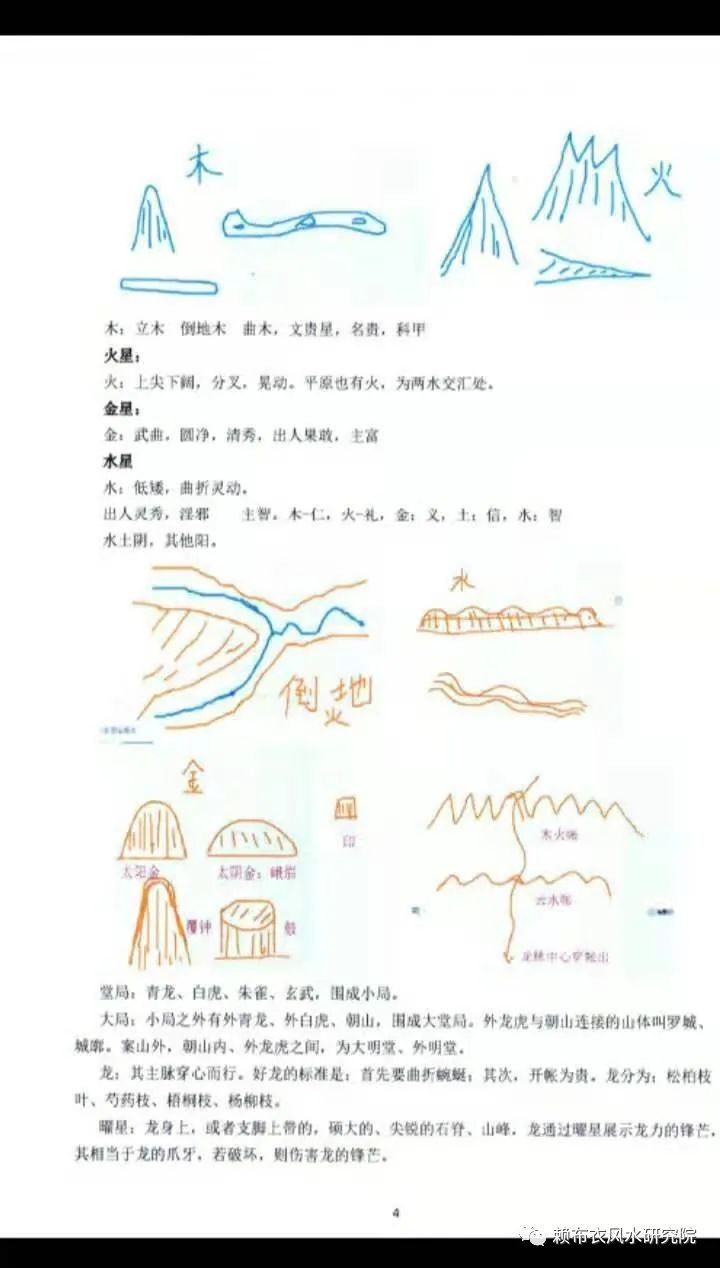 木
火
木：立木 倒地木 曲木，文贵星，名贵，科甲
火星：
火：上尖下阔，分叉，晃动。平原也有火，为两水交汇处。
金星：
金：武曲，圆净，清秀，出人果敢，主富
水星
水：低矮，曲折灵动。
出人灵秀，淫邪 主智。木-仁，火-礼，金：义，土：信，水：智
水土阴，其他阳。
水
倒地
火
金
印
太阳金
太阴金：峨眉
木火帐
覆钟
云水帐
龙脉中心穿帐出
堂局：青龙、白虎、朱雀、玄武，围成小局。
大局：小局之外有外青龙、外白虎、朝山，围成大堂局。外龙虎与朝山连接的山体叫罗城、
城廓。案山外，朝山内、外龙虎之间，为大明堂、外明堂。
龙：其主脉穿心而行。好龙的标准是：首先要曲折蜿蜒；其次，开帐为贵。龙分为：松柏枝
叶、芍药枝、梧桐枝、杨柳枝。
曜星：龙身上，或者支脚上带的，硕大的、尖锐的石脊、山峰，龙通过曜星展示龙力的锋芒，
其相当于龙的爪牙，若破坏，则伤害龙的锋芒。
4
赖布衣风水研究院